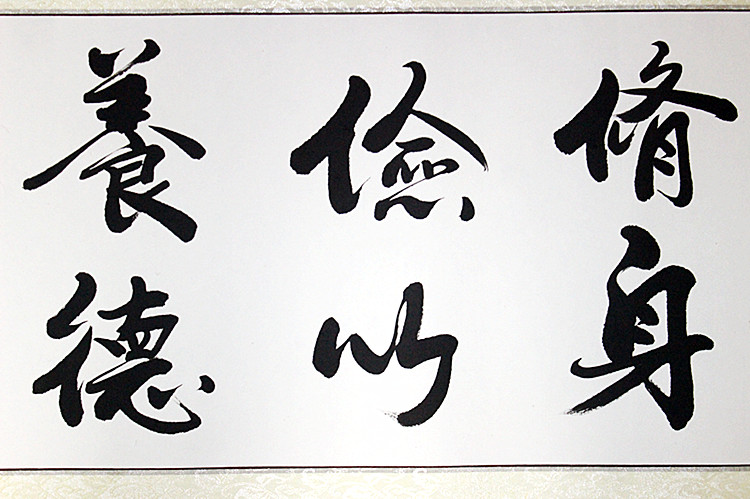 脩身
儉以
養德